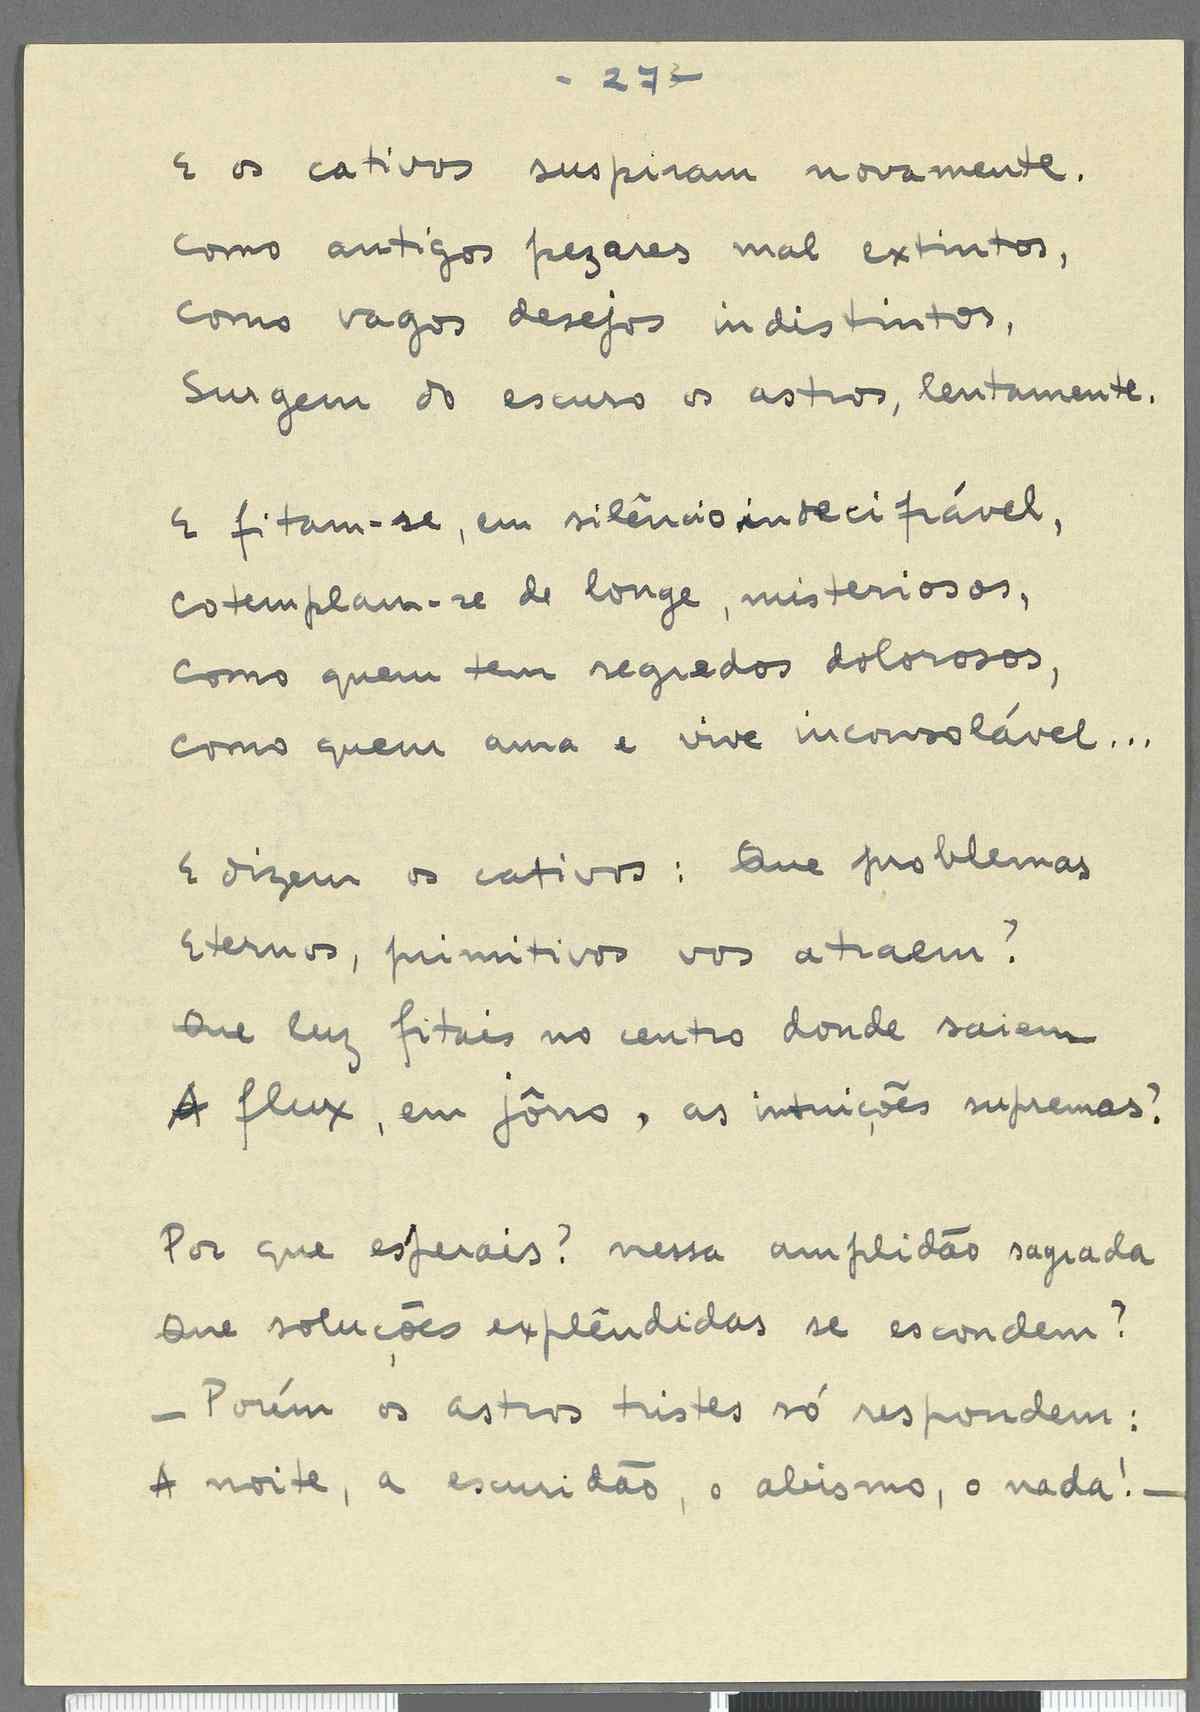 - 27 -
E os cativos suspiram novamente.
Como antigos pezares mal extintos,
Como vagos desejos indistintos,
Surgem do escuro os astros, lentamente.
E fitam-se, em silêncio indecifrável,
Cotemplam-se de longe, misteriosos,
Como quem tem segredos dolorosos,
Como quem ama e vive inconsolável...
E dizem os cativos: Que problemas
Eternos, primitivos vos atraem?
Que luz fitais no centro donde saiem
A flux, em jôrro, as intuições supremas?
Por que esperais? nessa amplidão sagrada
Que soluções explêndidas se escondem?
_ Porém os astros tristes só respondem:
A noite, a escuridão, o abismo, o nada! _